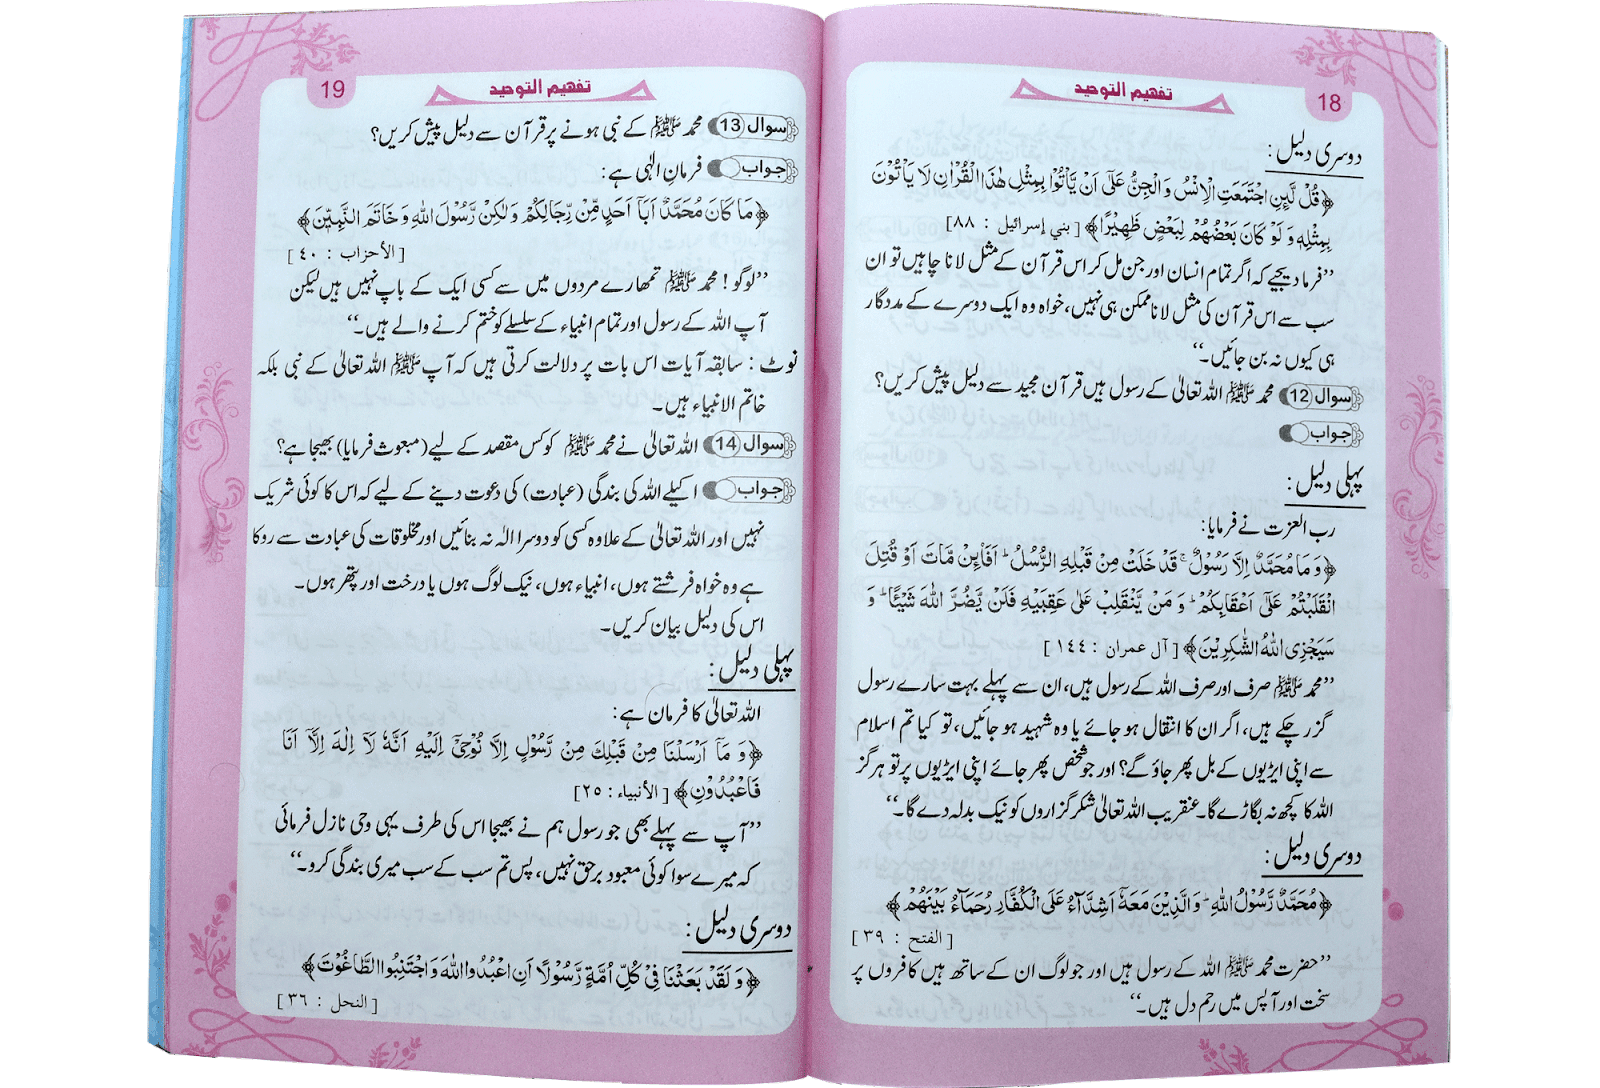 18
تفهيم التوحيد
دوسری دلیل:
﴿قُلْ لَّئِنِ اجْتَمَعَتِ الْاِنْسُ وَالْجِنُّ عَلٰٓى اَنْ يَّاْتُوْا بِمِثْلِ هٰذَا الْقُرْاٰنِ لَا يَاْتُوْنَ
بِمِثْلِهٖ وَلَوْ كَانَ بَعْضُهُمْ لِبَعْضٍ ظَهِيْرًا﴾ [بني إسرائيل : ٨٨]
”فرما دیجیے کہ اگر تمام انسان اور جن مل کر اس قرآن کے مثل لانا چاہیں تو ان
سب سے اس قرآن کی مثل لانا ممکن ہی نہیں، خواہ وہ ایک دوسرے کے مددگار
ہی کیوں نہ بن جائیں۔“
سوال 12 محمد ﷺ اللہ تعالیٰ کے رسول ہیں قرآن مجید سے دلیل پیش کریں؟
جواب
پہلی دلیل:
رب العزت نے فرمایا:
﴿وَمَا مُحَمَّدٌ اِلَّا رَسُوْلٌ ۚ قَدْ خَلَتْ مِنْ قَبْلِهِ الرُّسُلُ ؕ اَفَا۟ىِٕنْ مَّاتَ اَوْ قُتِلَ
انْقَلَبْتُمْ عَلٰٓى اَعْقَابِكُمْ ؕ وَمَنْ يَّنْقَلِبْ عَلٰى عَقِبَيْهِ فَلَنْ يَّضُرَّ اللّٰهَ شَيْئًا ؕ وَ
سَيَجْزِى اللّٰهُ الشّٰكِرِيْنَ﴾ [آل عمران : ١٤٤]
”محمد ﷺ صرف اور صرف اللہ کے رسول ہیں، ان سے پہلے بہت سارے رسول
گزر چکے ہیں، اگر ان کا انتقال ہو جائے یا وہ شہید ہو جائیں، تو کیا تم اسلام
سے اپنی ایڑیوں کے بل پھر جاؤ گے؟ اور جو شخص پھر جائے اپنی ایڑیوں پر تو ہرگز
اللہ کا کچھ نہ بگاڑے گا۔ عنقریب اللہ تعالیٰ شکر گزاروں کو نیک بدلہ دے گا۔“
دوسری دلیل:
﴿مُحَمَّدٌ رَّسُوْلُ اللّٰهِ ؕ وَالَّذِيْنَ مَعَهٗٓ اَشِدَّآءُ عَلَى الْكُفَّارِ رُحَمَآءُ بَيْنَهُمْ﴾
[الفتح : ٣٩]
”حضرت محمد ﷺ اللہ کے رسول ہیں اور جو لوگ ان کے ساتھ ہیں کافروں پر
سخت اور آپس میں رحم دل ہیں۔“
19
تفهيم التوحيد
سوال 13 محمد ﷺ کے نبی ہونے پر قرآن سے دلیل پیش کریں؟
جواب فرمانِ الٰہی ہے:
﴿مَا كَانَ مُحَمَّدٌ اَبَآ اَحَدٍ مِّنْ رِّجَالِكُمْ وَلٰكِنْ رَّسُوْلَ اللّٰهِ وَخَاتَمَ النَّبِيّٖنَ﴾
[الأحزاب : ٤٠]
”لوگو! محمد ﷺ تمھارے مردوں میں سے کسی ایک کے باپ نہیں ہیں لیکن
آپ اللہ کے رسول اور تمام انبیاء کے سلسلے کو ختم کرنے والے ہیں۔“
نوٹ : سابقہ آیات اس بات پر دلالت کرتی ہیں کہ آپ ﷺ اللہ تعالیٰ کے نبی بلکہ
خاتم الانبیاء ہیں۔
سوال 14 اللہ تعالیٰ نے محمد ﷺ کو کس مقصد کے لیے (مبعوث فرمایا) بھیجا ہے؟
جواب اکیلے اللہ کی بندگی (عبادت) کی دعوت دینے کے لیے کہ اس کا کوئی شریک
نہیں اور اللہ تعالیٰ کے علاوہ کسی کو دوسرا الٰہ نہ بنائیں اور مخلوقات کی عبادت سے روکا
ہے وہ خواہ فرشتے ہوں، انبیاء ہوں، نیک لوگ ہوں یا درخت اور پتھر ہوں۔
اس کی دلیل بیان کریں۔
پہلی دلیل:
اللہ تعالیٰ کا فرمان ہے:
﴿وَمَآ اَرْسَلْنَا مِنْ قَبْلِكَ مِنْ رَّسُوْلٍ اِلَّا نُوْحِىْٓ اِلَيْهِ اَنَّهٗ لَآ اِلٰهَ اِلَّآ اَنَا
فَاعْبُدُوْنِ﴾ [الأنبياء : ٢٥]
”آپ سے پہلے بھی جو رسول ہم نے بھیجا اس کی طرف یہی وحی نازل فرمائی
کہ میرے سوا کوئی معبود برحق نہیں، پس تم سب کے سب میری بندگی کرو۔“
دوسری دلیل:
﴿وَلَقَدْ بَعَثْنَا فِىْ كُلِّ اُمَّةٍ رَّسُوْلًا اَنِ اعْبُدُوا اللّٰهَ وَاجْتَنِبُوا الطَّاغُوْتَ﴾
[النحل : ٣٦]